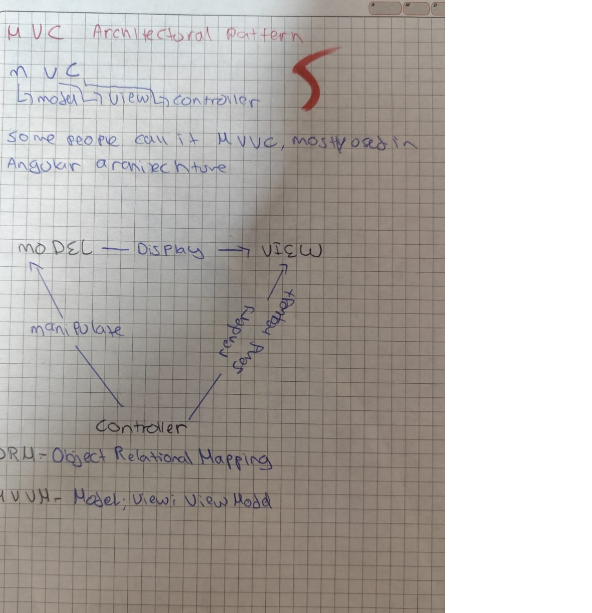 MVC Architectoral Pattern
5
M V C
model View controller
Some people call it MVVC, mostly used in
Angular architechture
MODEL — Display → VIEW
manipulate
renders
send request
Controller
ORM - Object Relational Mapping
MVVM - Model; View; View Model